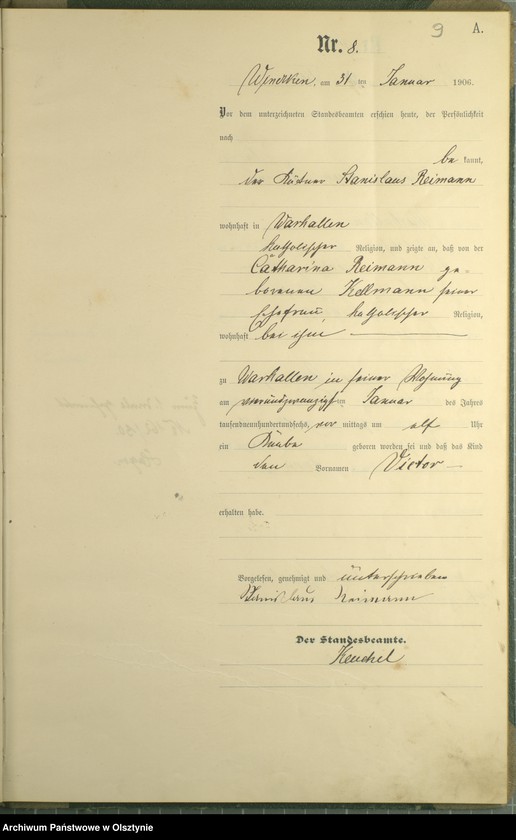 9 A.
Nr. 8.
am 31 ten Januar 1906.
Vor dem unterzeichneten Standesbeamten erschien heute, der Persönlichkeit
nach
be kannt,
der Stanislaus Reimann
wohnhaft in Warkallen
katholischer Religion, und zeigte an, daß von der
Catharina Reimann ge-
borenen Kellmann seiner
Ehefrau, katholischer Religion,
wohnhaft bei ihm
zu Warkallen in seiner Wohnung
am vierundzwanzigsten Januar des Jahres
tausendneunhundertundsechs, vor mittags um elf Uhr
ein Knabe geboren worden sei und daß das Kind
den Vornamen Victor
erhalten habe.
Vorgelesen, genehmigt und unterschrieben
Stanislaus Reimann
Der Standesbeamte.
Archiwum Państwowe w Olsztynie